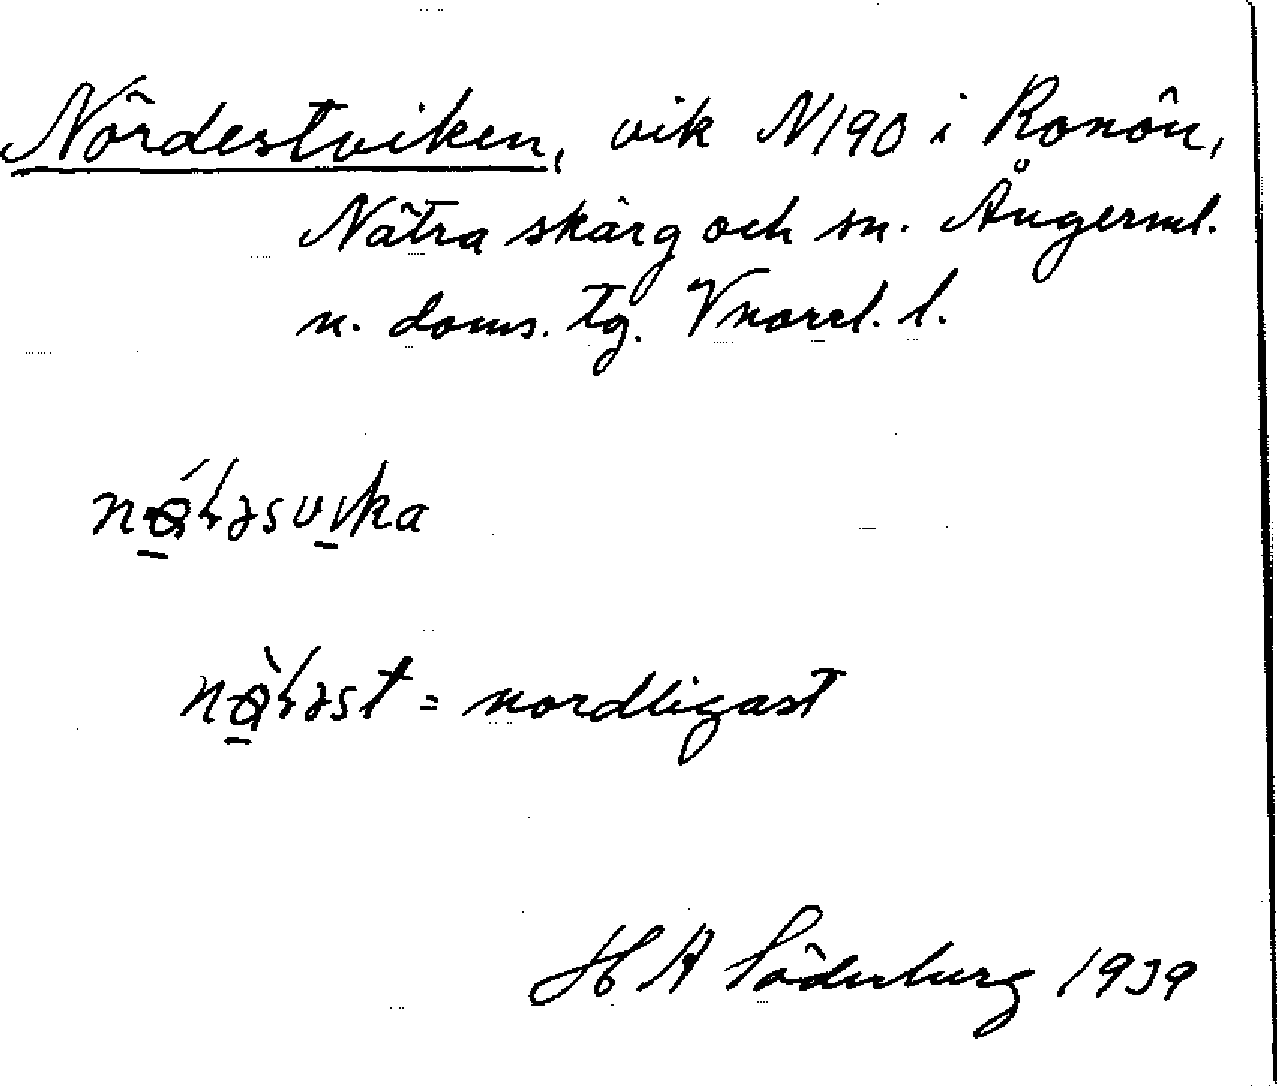 Nördestviken, vik N190 i Ronön,
Nätra skärg och sn. Ångerml.
n. doms. tg. Vnorrl. l.
= nordligast
H A Söderberg 1939